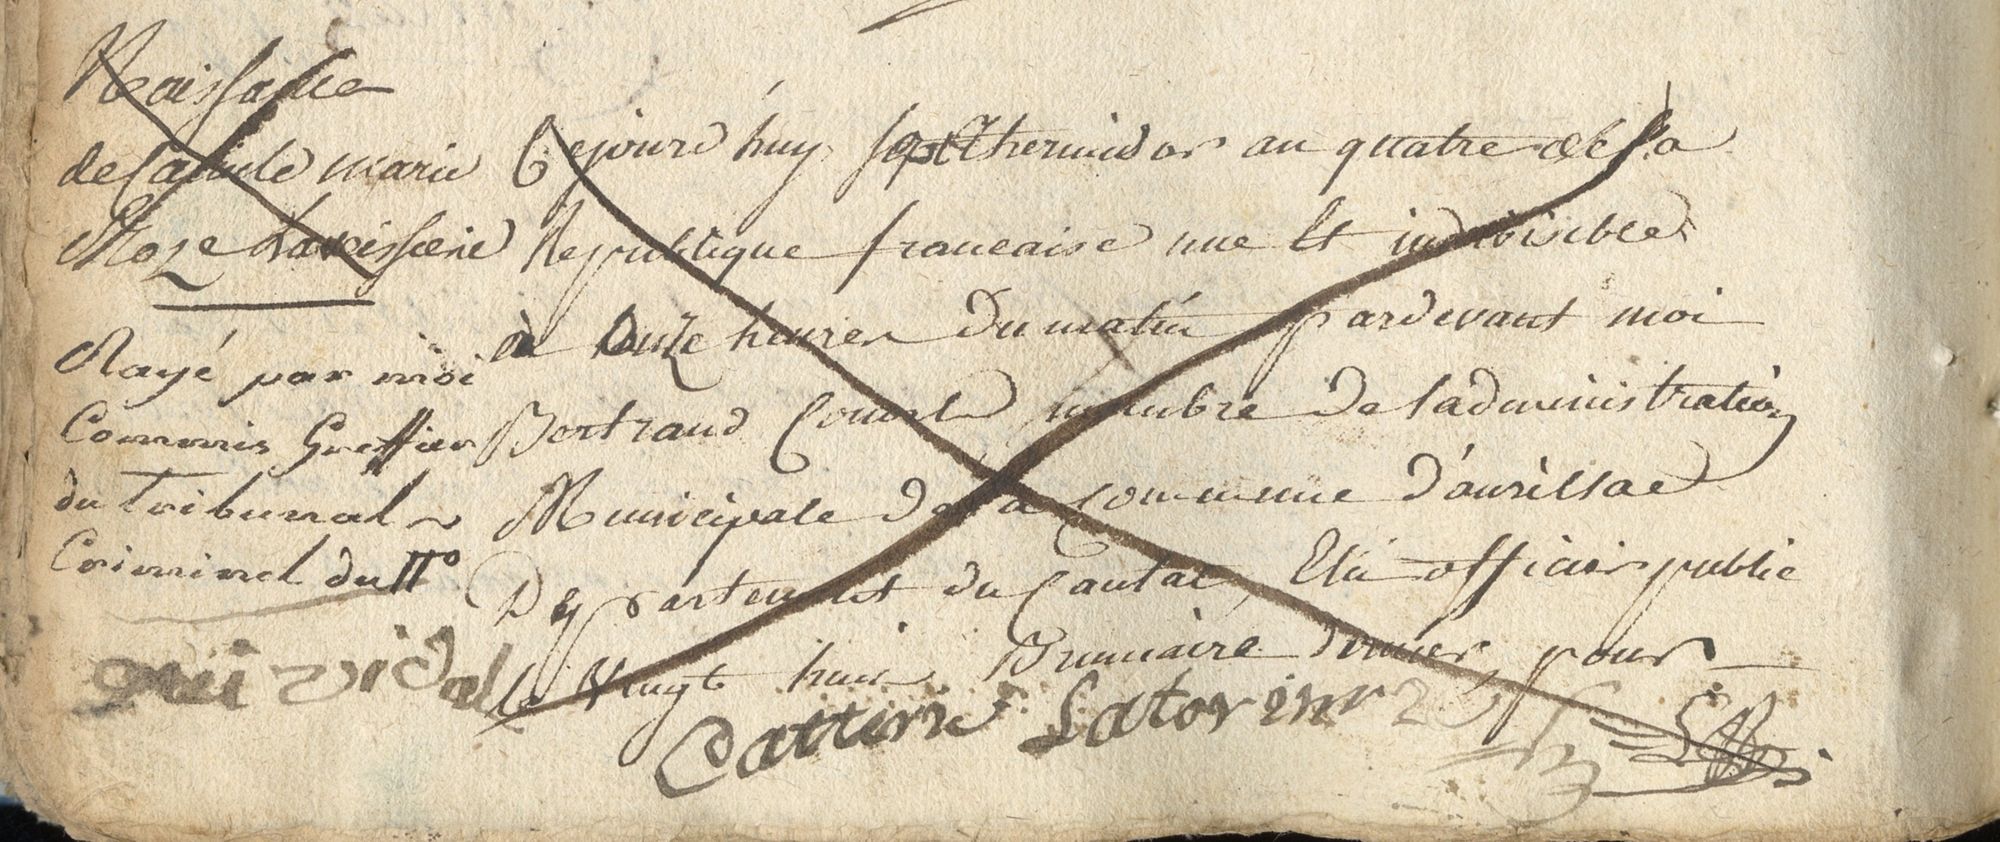 Naissance
de Cecile marie
Roze Lavaissiere
Rayé par moi
Commis Greffier
du Tribunal
Criminel du
Cejourd'huy sept thermidor an quatre de la
Republique francaise une Et indivisible
à Onze heures du matin pardevant moi
Bertrand membre de l'administration
Municipale de la Commune d'aurillac
Departement du Cantal, Elu officier public
le Vingt huit Brumaire dernier, pour
vidal
Catterine